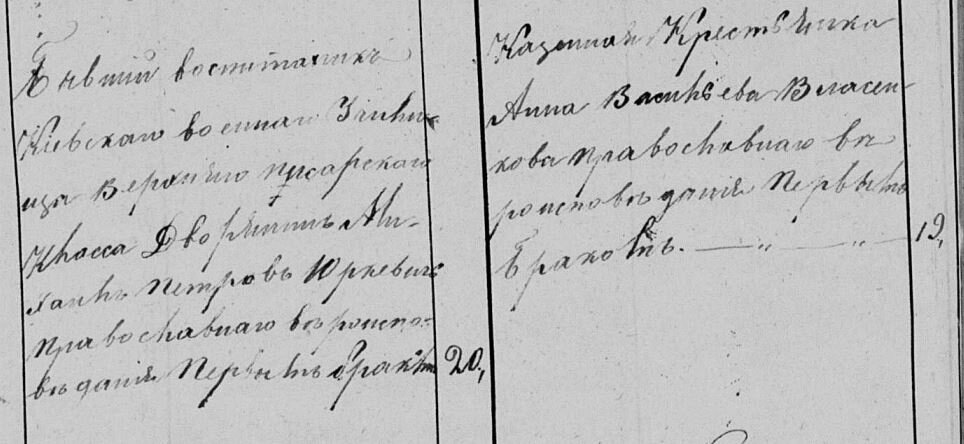 Бывшій воспитаникъ
Кіевскаго военнаго Учили-
ща Верхняго писарскаго
Класса Дворянинъ Ми-
хаилъ Петровъ Юркевичъ
православнаго вѣроиспо-
вѣданія Первымъ бракомъ 20,
Казенная Крестьянка
Анна Васильева Власен-
кова православнаго вѣ-
роисповѣданія Первымъ
бракомъ. — „ — „ — 19,